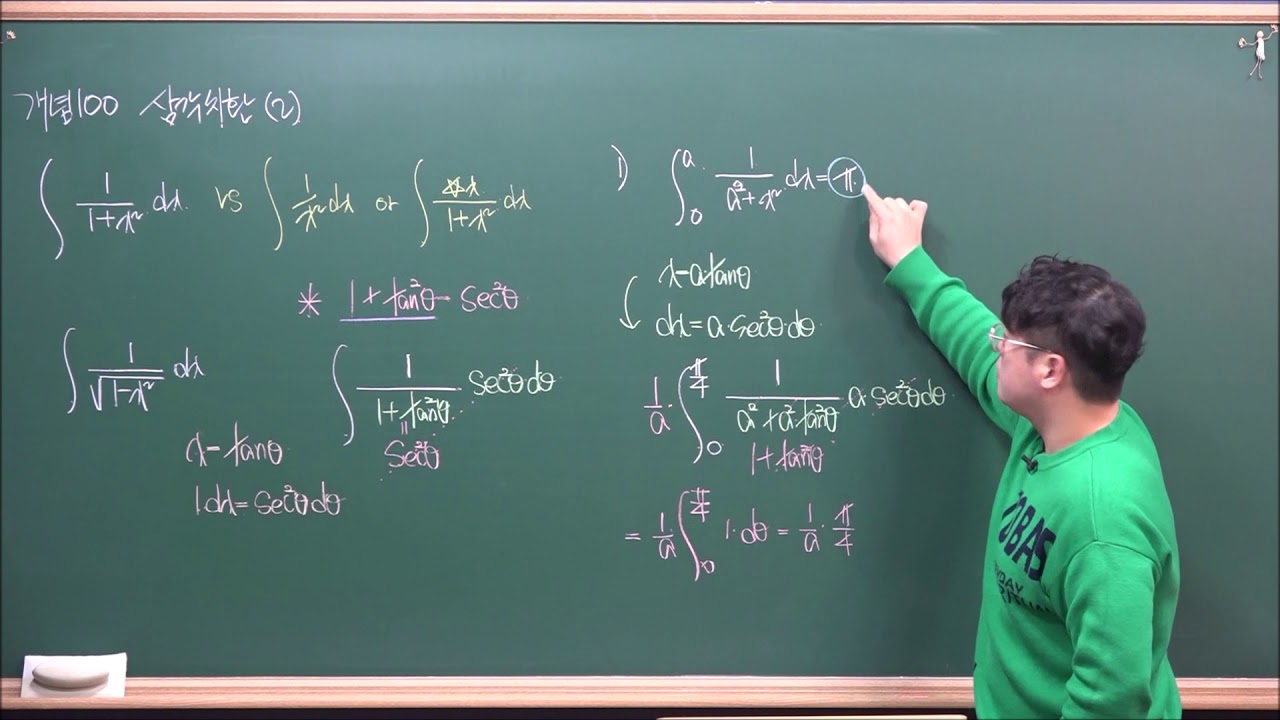 개념100 삼각치환 (2)
∫ 1/(1+x²) dx vs ∫ 1/x² dx or ∫ x/(1+x²) dx
* 1+tan²θ = sec²θ
∫ 1/√(1-x²) dx
∫ 1/(1+tan²θ) sec²θ dθ
sec²θ
x = tanθ
1·dx = sec²θ dθ
1) ∫₀ᵃ 1/(a²+x²) dx = π
x = a·tanθ
dx = a·sec²θ·dθ
1/a · ∫₀^(π/4) 1/(a²+a²·tan²θ) a·sec²θ dθ
1+tan²θ
= 1/a ∫₀^(π/4) 1·dθ = 1/a · π/4